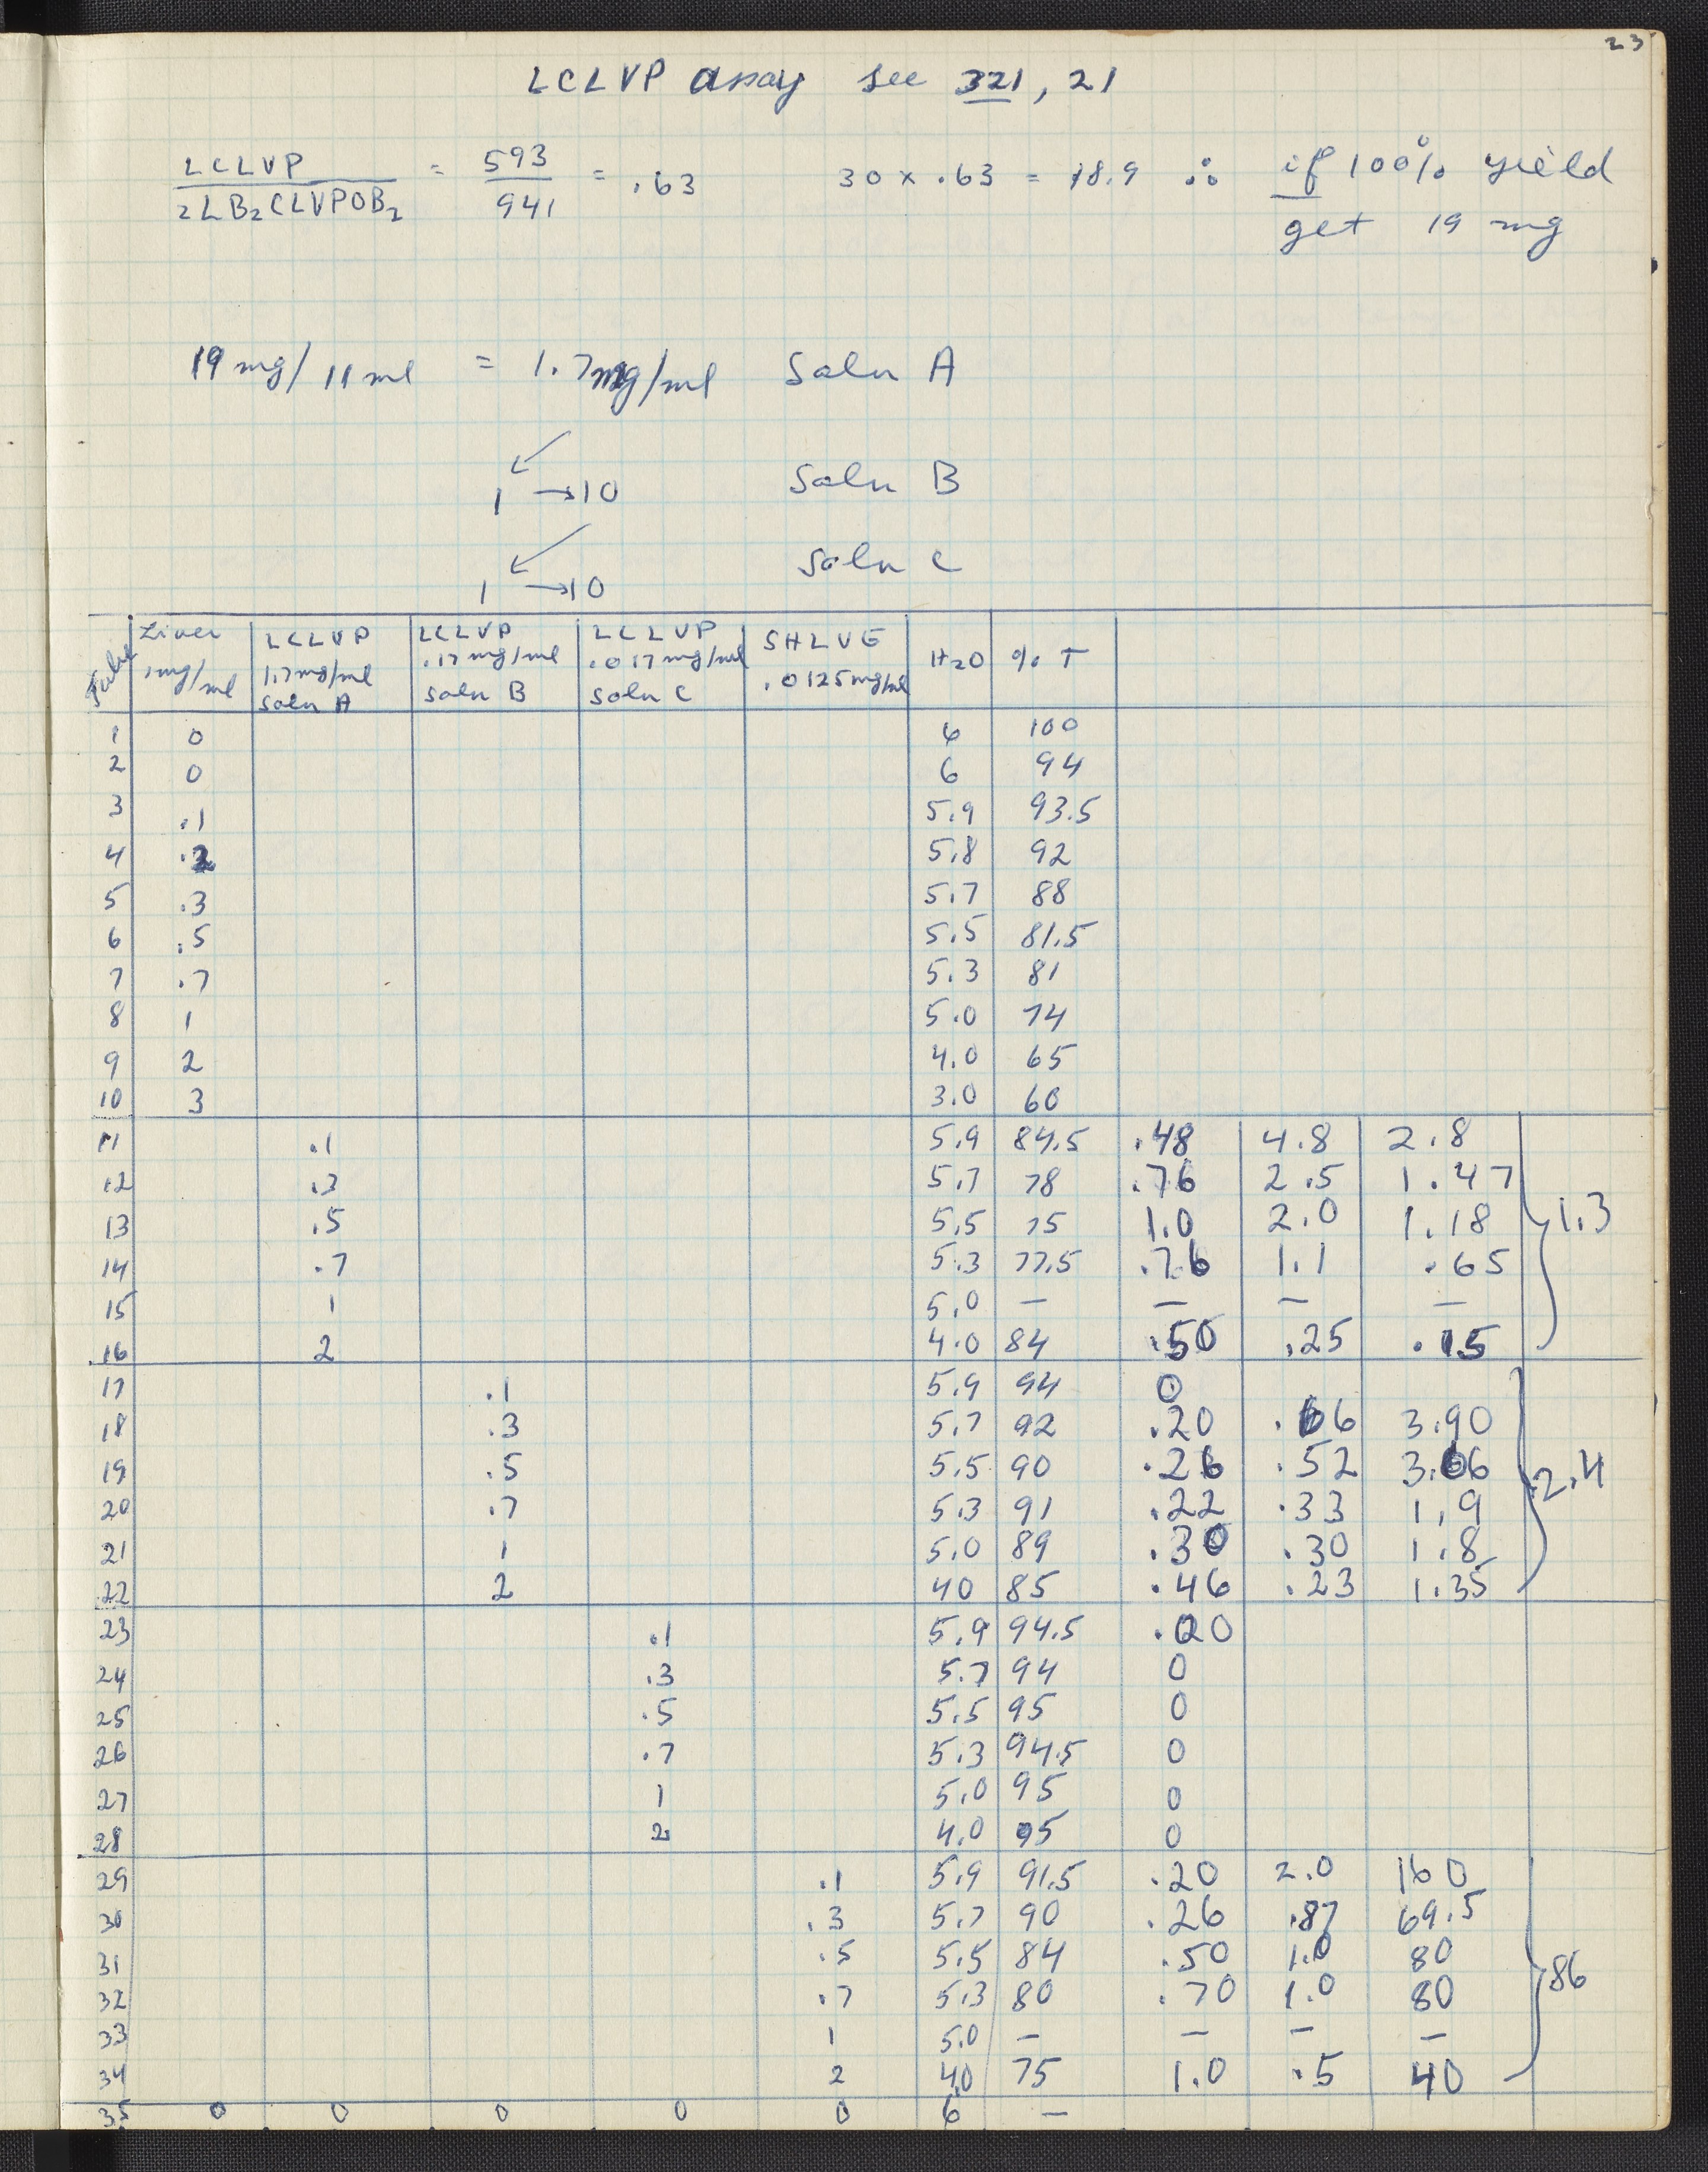 23
LCLVP assay see 321, 21
LCLVP / 2LB₂CLVPOB₂ = 593 / 941 = .63 30 x .63 = 18.9 ∴ if 100% yield
get 19 mg
19 mg/11 ml = 1.7 mg/ml Soln A
1 → 10 Soln B
1 → 10 Soln C
Tube Liver 1mg/ml LCLVP 1.7mg/ml soln A LCLVP .17mg/ml soln B LCLVP .017mg/ml soln C SHLVE .0125mg/ml H₂O % T
1 0 6 100
2 0 6 94
3 .1 5.9 93.5
4 .2 5.8 92
5 .3 5.7 88
6 .5 5.5 81.5
7 .7 5.3 81
8 1 5.0 74
9 2 4.0 65
10 3 3.0 60
11 .1 5.9 84.5 .48 4.8 2.8
12 .3 5.7 78 .76 2.5 1.47
13 .5 5.5 75 1.0 2.0 1.18 1.3
14 .7 5.3 77.5 .76 1.1 .65
15 1 5.0 — — — —
16 2 4.0 84 .50 .25 .15
17 .1 5.9 94 0
18 .3 5.7 92 .20 .66 3.90
19 .5 5.5 90 .26 .52 3.06 2.4
20 .7 5.3 91 .22 .33 1.9
21 1 5.0 89 .30 .30 1.8
22 2 40 85 .46 .23 1.35
23 .1 5.9 94.5 .00
24 .3 5.7 94 0
25 .5 5.5 95 0
26 .7 5.3 94.5 0
27 1 5.0 95 0
28 2 4.0 95 0
29 .1 5.9 91.5 .20 2.0 160
30 .3 5.7 90 .26 .87 69.5
31 .5 5.5 84 .50 1.0 80 86
32 .7 5.3 80 .70 1.0 80
33 1 5.0 — — — —
34 2 4.0 75 1.0 .5 40
35 0 0 0 0 0 6 —